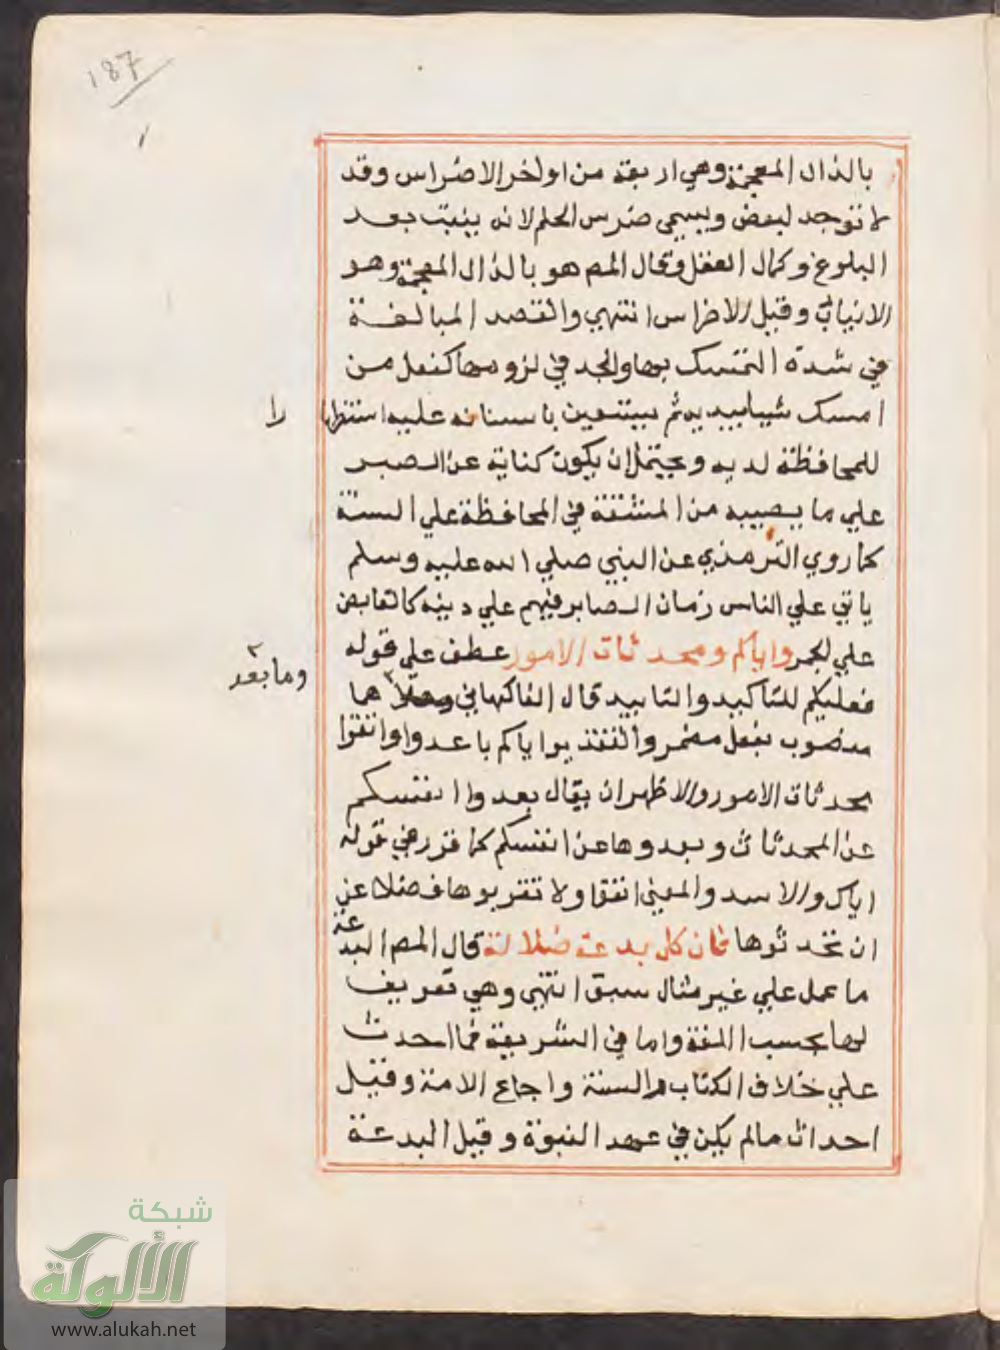 187
بالذال المعجمة وهي اربعة من اواخر الاضراس وقد
لا توجد لبعض ويسمى ضرس الحلم لانه ينبت بعد
البلوغ وكمال العقل وقال المص هو بالذال المعجمة وهو
الانياب وقيل الاضراس انتهي والقصد المبالغة
في شدة التمسك بها والجد في لزومها كفعل من
امسك شيا بيديه ثم يستعين باسنانه عليه استظهارا
للمحافظة لديه ويحتمل ان يكون كناية عن الصبر
علي ما يصيبه من المشقة في المحافظة علي السنة
كما روي الترمذي عن النبي صلي الله عليه وسلم
ياتي علي الناس زمان الصابر فيهم علي دينه كالقابض
علي الجمر واياكم ومحدثات الامور عطف علي قوله
وما بعد
فعليكم للتاكيد والتاييد قال الفاكهاني ها
منصوب بفعل مضمر والتقدير اياكم باعدوا واتقوا
محدثات الامور والاظهر ان يقال بعدوا انفسكم
عن المحدثات وبعدوها عن انفسكم كما قرر في قوله
اياك والاسد والمعني اتقوا ولا تقربوها فضلا عن
ان تحدثوها فان كل بدعة ضلالة قال المص البدعة
ما عمل علي غير مثال سبق انتهي وهي تعريف
لها بحسب اللغة واما في الشريعة فما احدث
علي خلاف الكتاب والسنة واجماع الامة وقيل
احداث مالم يكن في عهد النبوة وقيل البدعة
شبكة
الألوكة
www.alukah.net